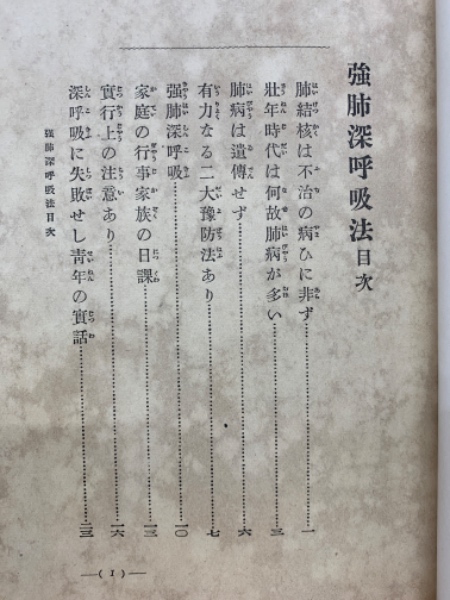 強肺深呼吸法目次
肺結核は不治の病ひに非ず……一
壯年時代は何故肺病が多い……三
肺病は遺傳せず……六
有力なる二大豫防法あり……七
强肺深呼吸……一〇
家庭の行事家族の日課……一三
實行上の注意あり……一六
深呼吸に失敗せし靑年の實話……二三
强肺深呼吸法目次
―( 1 )―